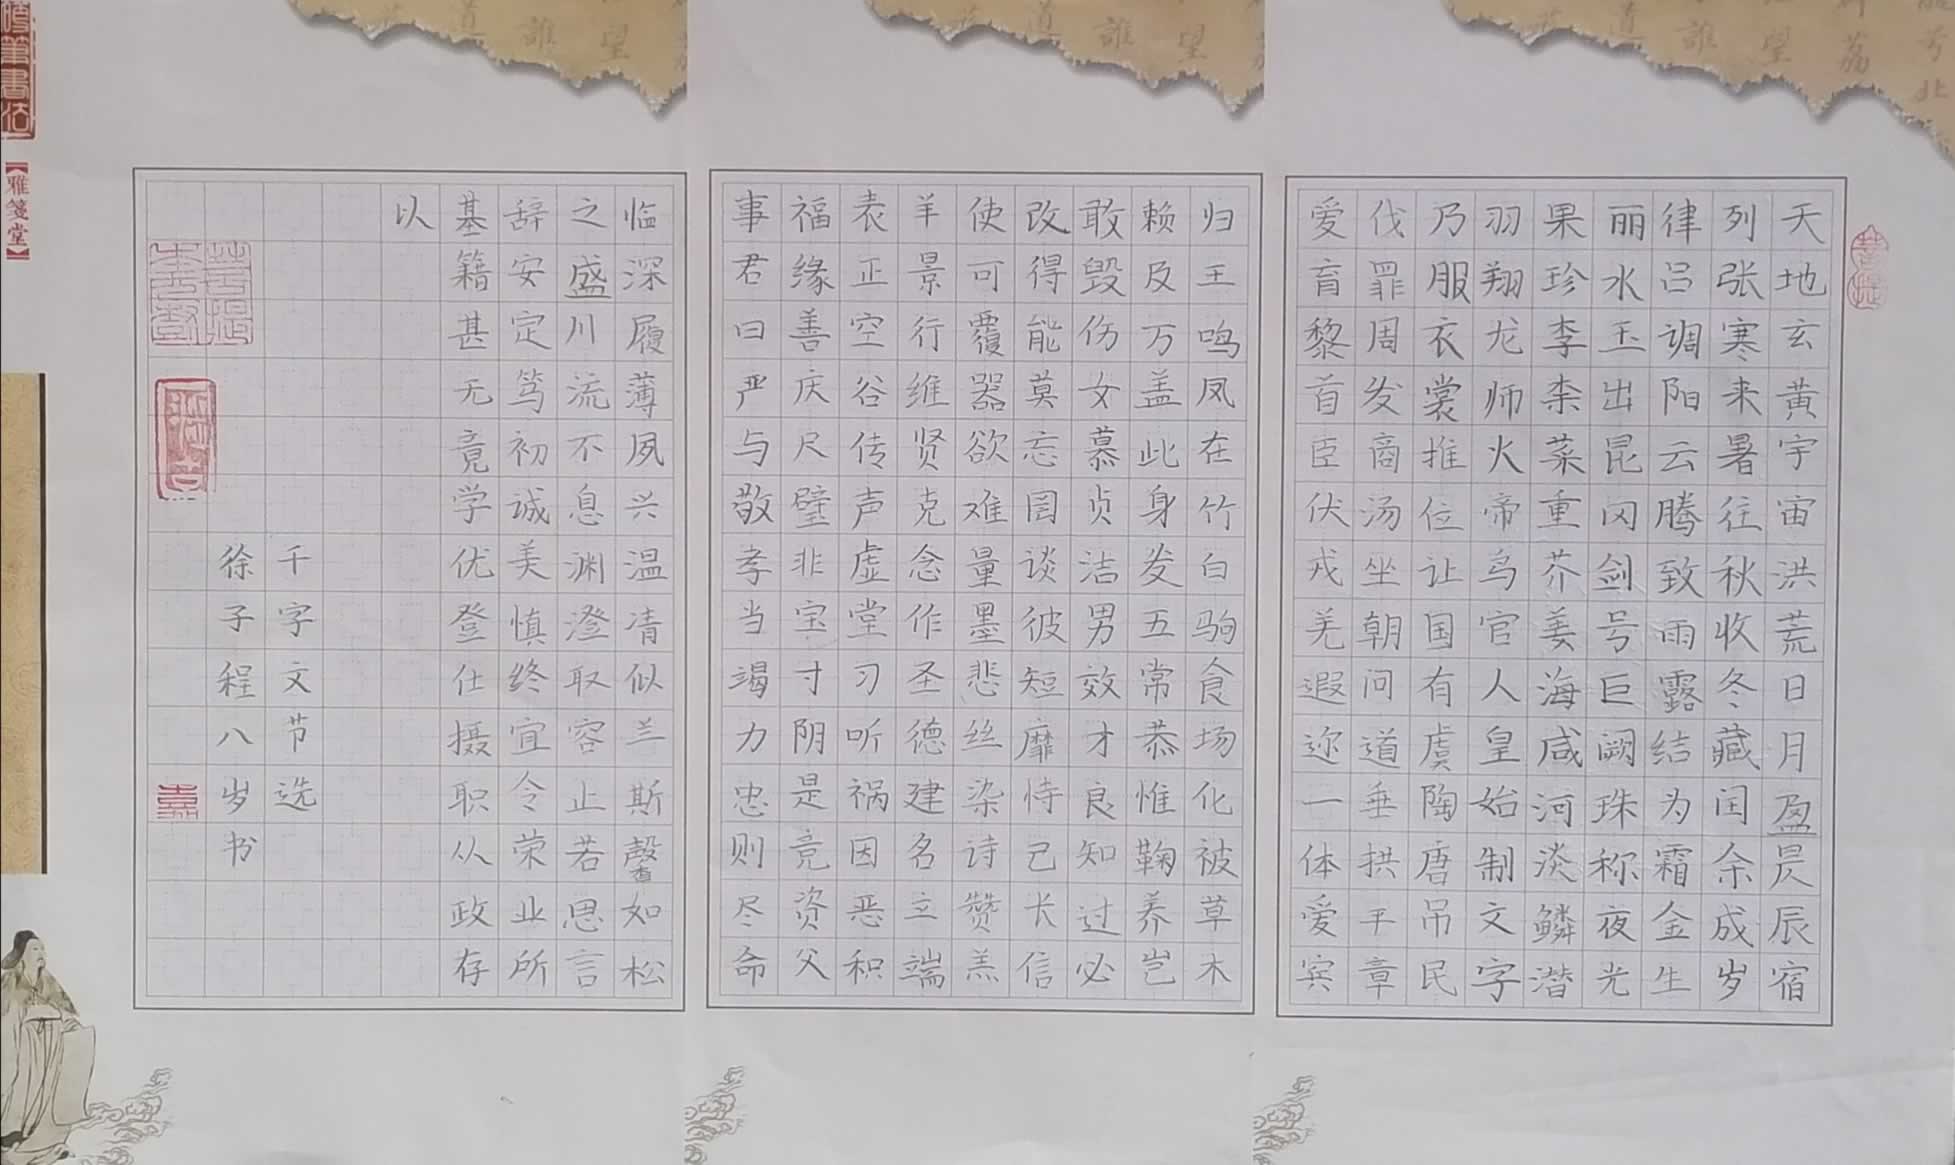 天地玄黄宇宙洪荒日月盈昃辰宿
列张寒来暑往秋收冬藏闰余成岁
律吕调阳云腾致雨露结为霜金生
丽水玉出昆冈剑号巨阙珠称夜光
果珍李柰菜重芥姜海咸河淡鳞潜
羽翔龙师火帝鸟官人皇始制文字
乃服衣裳推位让国有虞陶唐吊民
伐罪周发商汤坐朝问道垂拱平章
爱育黎首臣伏戎羌遐迩一体爱宾
归王鸣凤在竹白驹食场化被草木
赖及万盖此身发五常恭惟鞠养岂
敢毁伤女慕贞洁男效才良知过必
改得能莫忘罔谈彼短靡恃己长信
使可覆器欲难量墨悲丝染诗赞羔
羊景行维贤克念作圣德建名立端
表正空谷传声虚堂习听祸因恶积
福缘善庆尺璧非宝寸阴是竞资父
事君曰严与敬孝当竭力忠则尽命
临深履薄夙兴温凊似兰斯馨如松
之盛川流不息渊澄取容止若思言
辞安定笃初诚美慎终宜令荣业所
基籍甚无竟学优登仕摄职从政存
以
千字文节选
徐子程八岁书
筆書法
【雅箋堂】